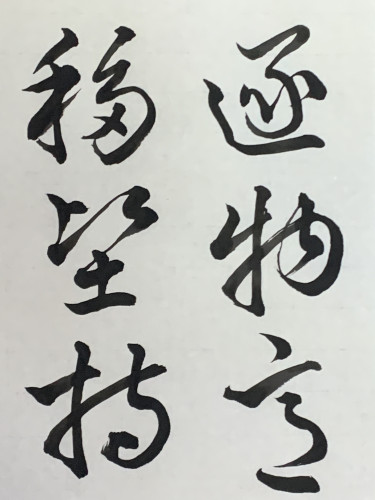 逐物意
移坚持